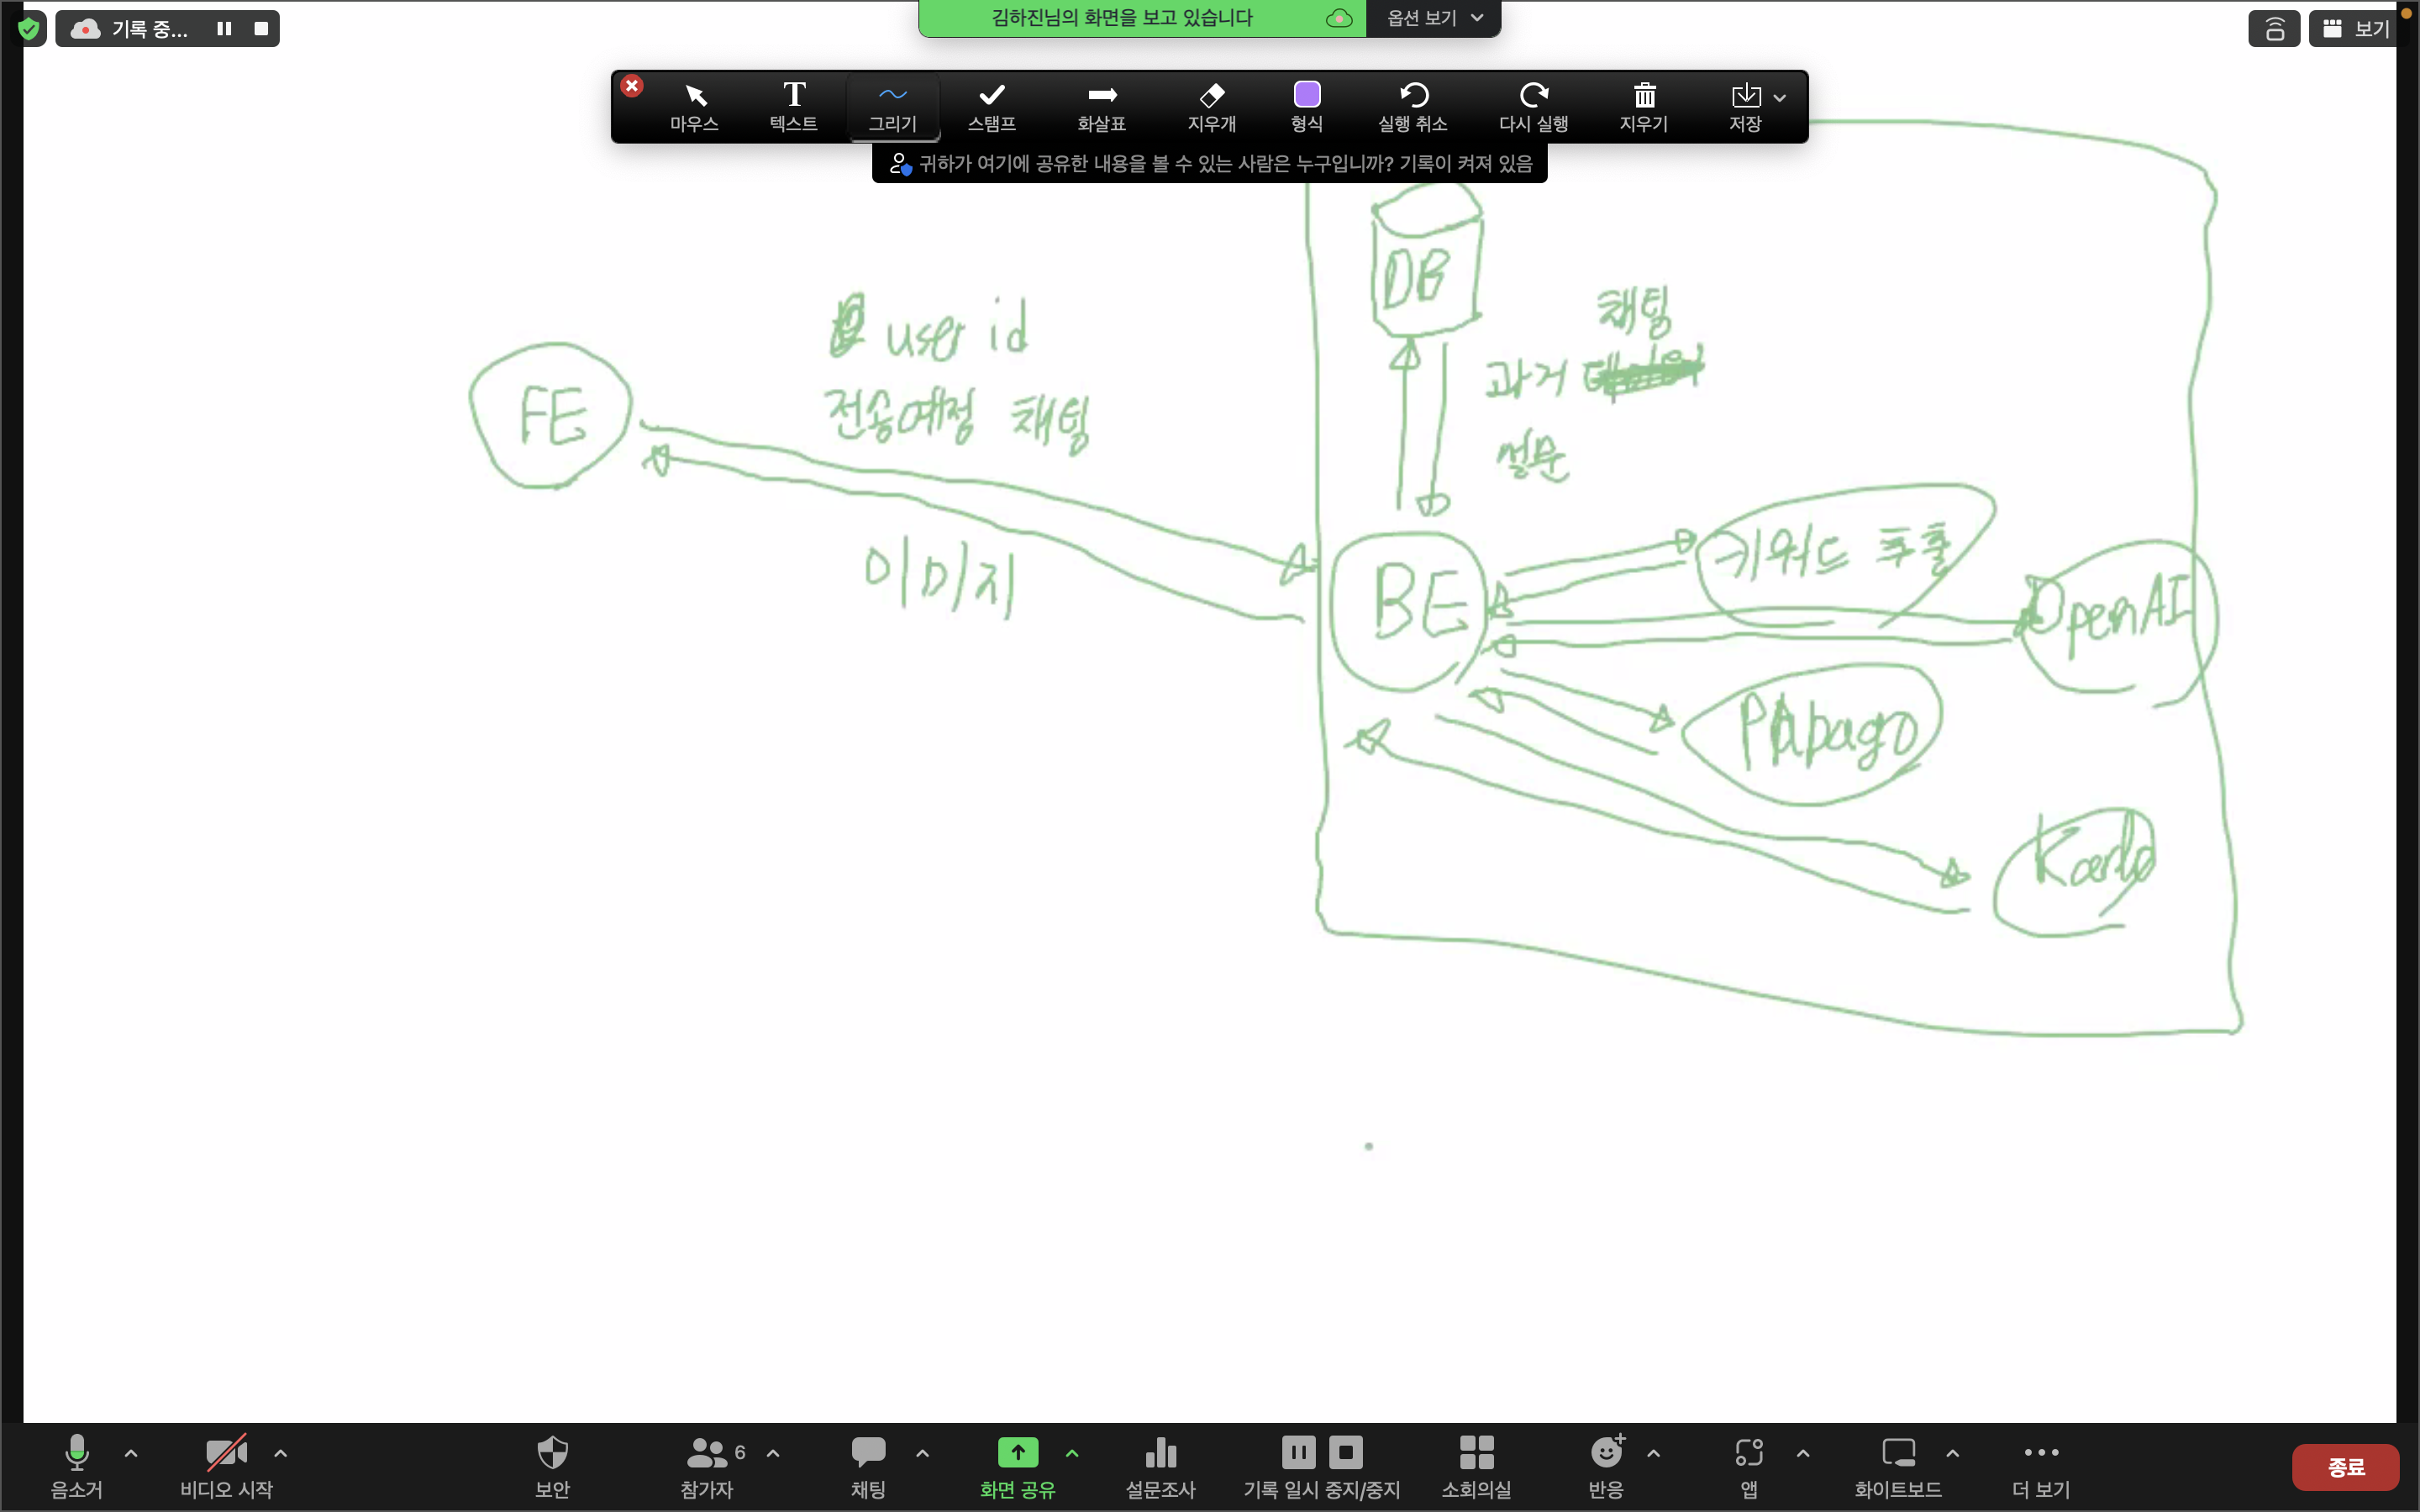 기록 중...
김하진님의 화면을 보고 있습니다
옵션 보기
보기
마우스
텍스트
그리기
스탬프
화살표
지우개
형식
실행 취소
다시 실행
지우기
저장
귀하가 여기에 공유한 내용을 볼 수 있는 사람은 누구입니까? 기록이 켜져 있음
DB
user id
전송예정 채팅
채팅
과거
설문
FE
이미지
BE
키워드 추출
OpenAI
PApago
Karlo
음소거
비디오 시작
보안
6
참가자
채팅
화면 공유
설문조사
기록 일시 중지/중지
소회의실
반응
앱
화이트보드
더 보기
종료